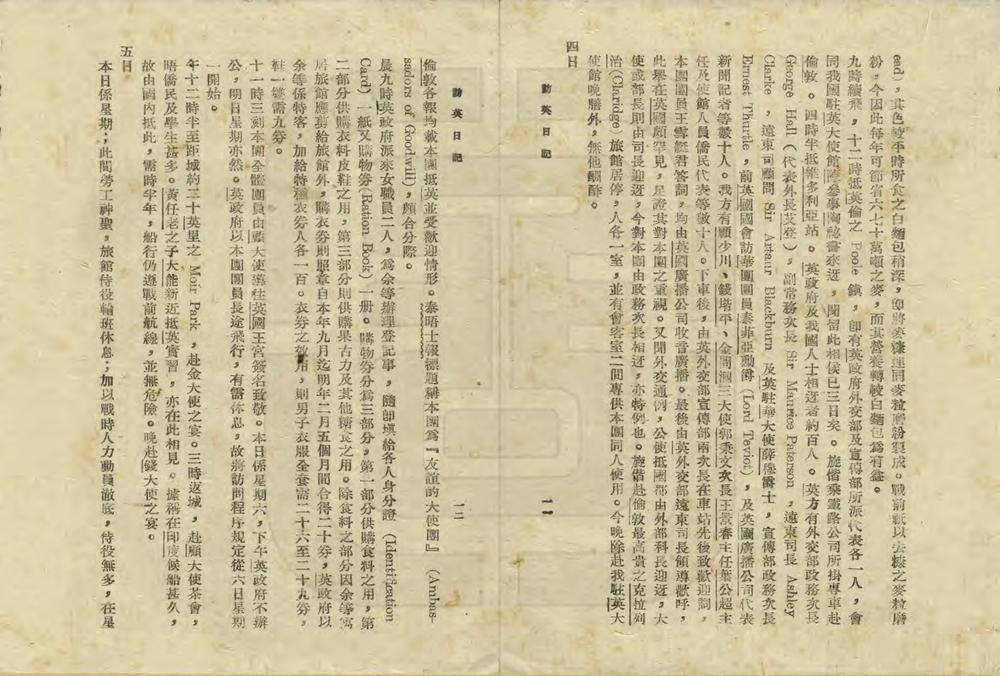 ead)，其色較平時所食之白麵包稍深，卽將麥糠連同麥粒磨粉製成。戰前祇以去糠之麥粒磨
粉，今因此每年可節省六七十萬噸之麥，而其營養轉較白麵包爲有益。
九時續飛，十二時抵英倫之 Poole 鎮，卽有英政府外交部及宣傳部所派代表各一人，會
同我國駐英大使館陳參事陶祕書來迓，聞留此相候已三日矣。旋偕乘鐵路公司所掛專車赴
倫敦。四時半抵維多利亞站。英政府及我國人士相迓者約百人。英方有外交部政務次長
George Hall（代表外長艾登），副常務次長 Sir Maurice Paterson，遠東司長 Ashley
Clarke，遠東司顧問 Sir Arthur Blackburn 及英駐華大使薛穆爵士，宣傳部政務次長
Ernest Thurtle，前英國國會訪華團團員泰菲亞勳爵 (Lord Teviot)，及英國廣播公司代表
新聞記者等數十人。我方有顧少川、錢堦平、金問泗三大使郭秉文次長王景春主任葉公超主
任及使館人員僑民代表等數十人。下車後，由英外交部宣傳部兩次長在車站先後致歡迎詞，
本團團員王雪艇君答詞，均由英國廣播公司收音廣播。最後由英外交部遠東司長領導歡呼，
此舉在英國頗罕見，足證其對本團之重視。又聞外交通例，公使抵國都由外部科長迎迓，大
使或部長則由司長迎迓，今對本團由政務次長相迓，亦特例也。旋偕赴倫敦最高貴之克拉列
治 (Claridge) 旅館居停，人各一室，並有會客室二間專供本團同人使用。今晚除赴我駐英大
使館晚膳外，無他酬酢。
四日
訪英日記
一一
訪英日記
一二
倫敦各報均載本團抵英並受歡迎情形。泰晤士報標題稱本團爲『友誼的大使團』 (Ambas-
sadors of Goodwill)，頗合分際。
晨九時英政府派來女職員二人，爲余等辦理登記事，隨卽塡給各人身分證 (Identification
Card) 一紙又購物劵 (Ration Book) 一册。購物劵分爲三部分，第一部分供購食料之用，第
二部分供購衣料皮鞋之用，第三部分則供購果古力及其他糖食之用。除食料之部分因余等寓
居旅館應剪給旅館外，購衣劵則照章自本年九月迄明年二月五個月間合得二十劵，英政府以
余等係特客，加給特種衣劵人各一百。衣劵之效用，則男子衣服全套需二十六至二十九劵，
鞋一雙需九劵。
十一時三刻本團全體團員由顧大使導往英國王宮簽名致敬。本日係星期六，下午英政府不辦
公，明日星期亦然。英政府以本團團員長途飛行，有需休息，故將訪問程序規定從六日星期
一開始。
午十二時半至距城約三十英里之 Moir Park，赴金大使之宴。三時返城，赴顧大使茶會，
晤僑民及學生甚多。黃任老之子大能新近抵英實習，亦在此相見。據稱在印度候船甚久，
故由國內抵此，需時半年，船行仍遵戰前航線，並無危險。晚赴錢大使之宴。
五日
本日係星期；此間勞工神聖，旅館侍役輪班休息；加以戰時人力動員澈底，侍役無多，在星